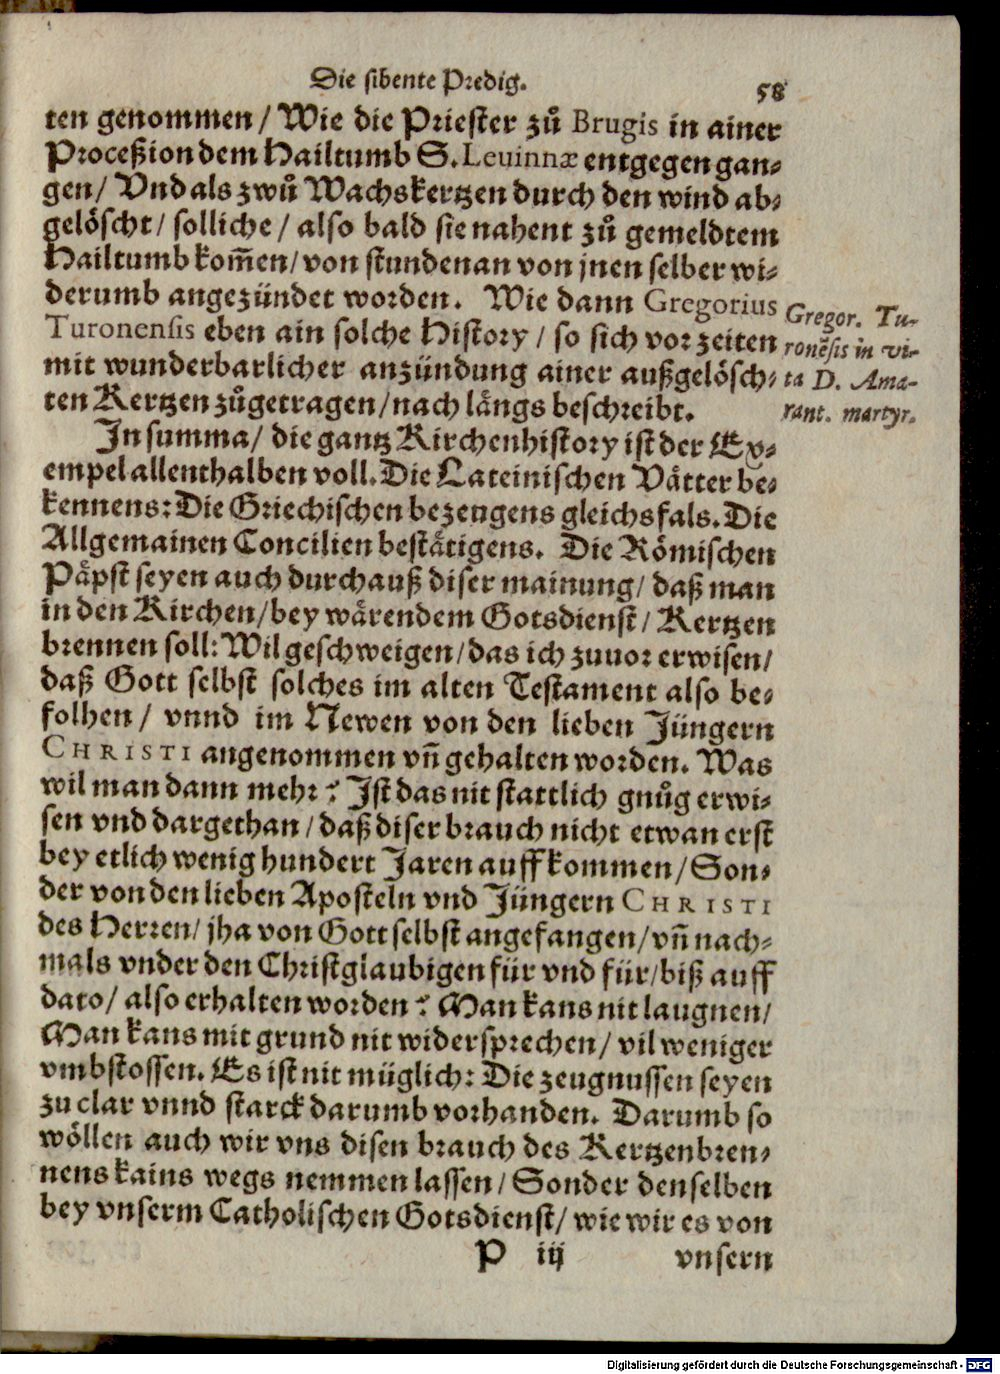 Die sibente Predig.
58
ten genommen / Wie die Priester zů Brugis in ainer
Proceßion dem Hailtumb S. Leuinnæ entgegen gan⸗
gen / Vnd als zwů Wachskertzen durch den wind ab⸗
gelöscht / solliche / also bald sie nahent zů gemeldtem
Hailtumb kom̃en / von stundenan von jnen selber wi⸗
derumb angezündet worden. Wie dann Gregorius
Turonensis eben ain solche History / so sich vor zeiten
mit wunderbarlicher anzündung ainer außgelösch⸗
ten Kertzen zůgetragen / nach lengs beschreibt.
Gregor. Tu-
ronẽsis in vi-
ta D. Ama-
rant. martyr.
In summa / die gantz Kirchenhistory ist der Ex⸗
empel allenthalben voll. Die Lateinischen Vätter be⸗
kennens: Die Griechischen bezeugens gleichsfals. Die
Allgemainen Concilien bestätigens. Die Römischen
Päpst seyen auch durchauß diser mainung / daß man
in den Kirchen / bey wärendem Gotsdienst / Kertzen
brennen soll: Wil geschweigen / das ich zuuor erwisen /
daß Gott selbst solches im alten Testament also be⸗
folhen / vnnd im Newen von den lieben Jüngern
CHRISTI angenommen vñ gehalten worden. Was
wil man dann mehr? Ist das nit stattlich gnůg erwi⸗
sen vnd dargethan / daß diser brauch nicht etwan erst
bey etlich wenig hundert Jaren auffkommen / Son⸗
der von den lieben Aposteln vnd Jüngern CHRISTI
des Herren / jha von Gott selbst angefangen / vñ nach⸗
mals vnder den Christglaubigen für vnd für / biß auff
dato / also erhalten worden? Man kans nit laugnen /
Man kans mit grund nit widersprechen / vil weniger
vmbstossen. Es ist nit müglich: Die zeugnussen seyen
zu clar vnnd starck darumb vorhanden. Darumb so
wöllen auch wir vns disen brauch des Kertzenbren⸗
nens kains wegs nemmen lassen / Sonder denselben
bey vnserm Catholischen Gotsdienst / wie wir es von
P iij
vnsern
Digitalisierung gefördert durch die Deutsche Forschungsgemeinschaft - DFG